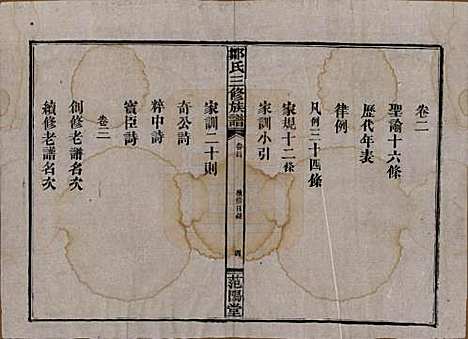 卷二
聖諭十六條
歷代年表
律例
凡例三十四條
家規十二條
家訓小引
鄒氏三修族譜
卷首
總修目錄
四
范陽堂
家訓二十則
奇公詩
粹中詩
賓臣詩
卷三
創修老譜名次
續修老譜名次